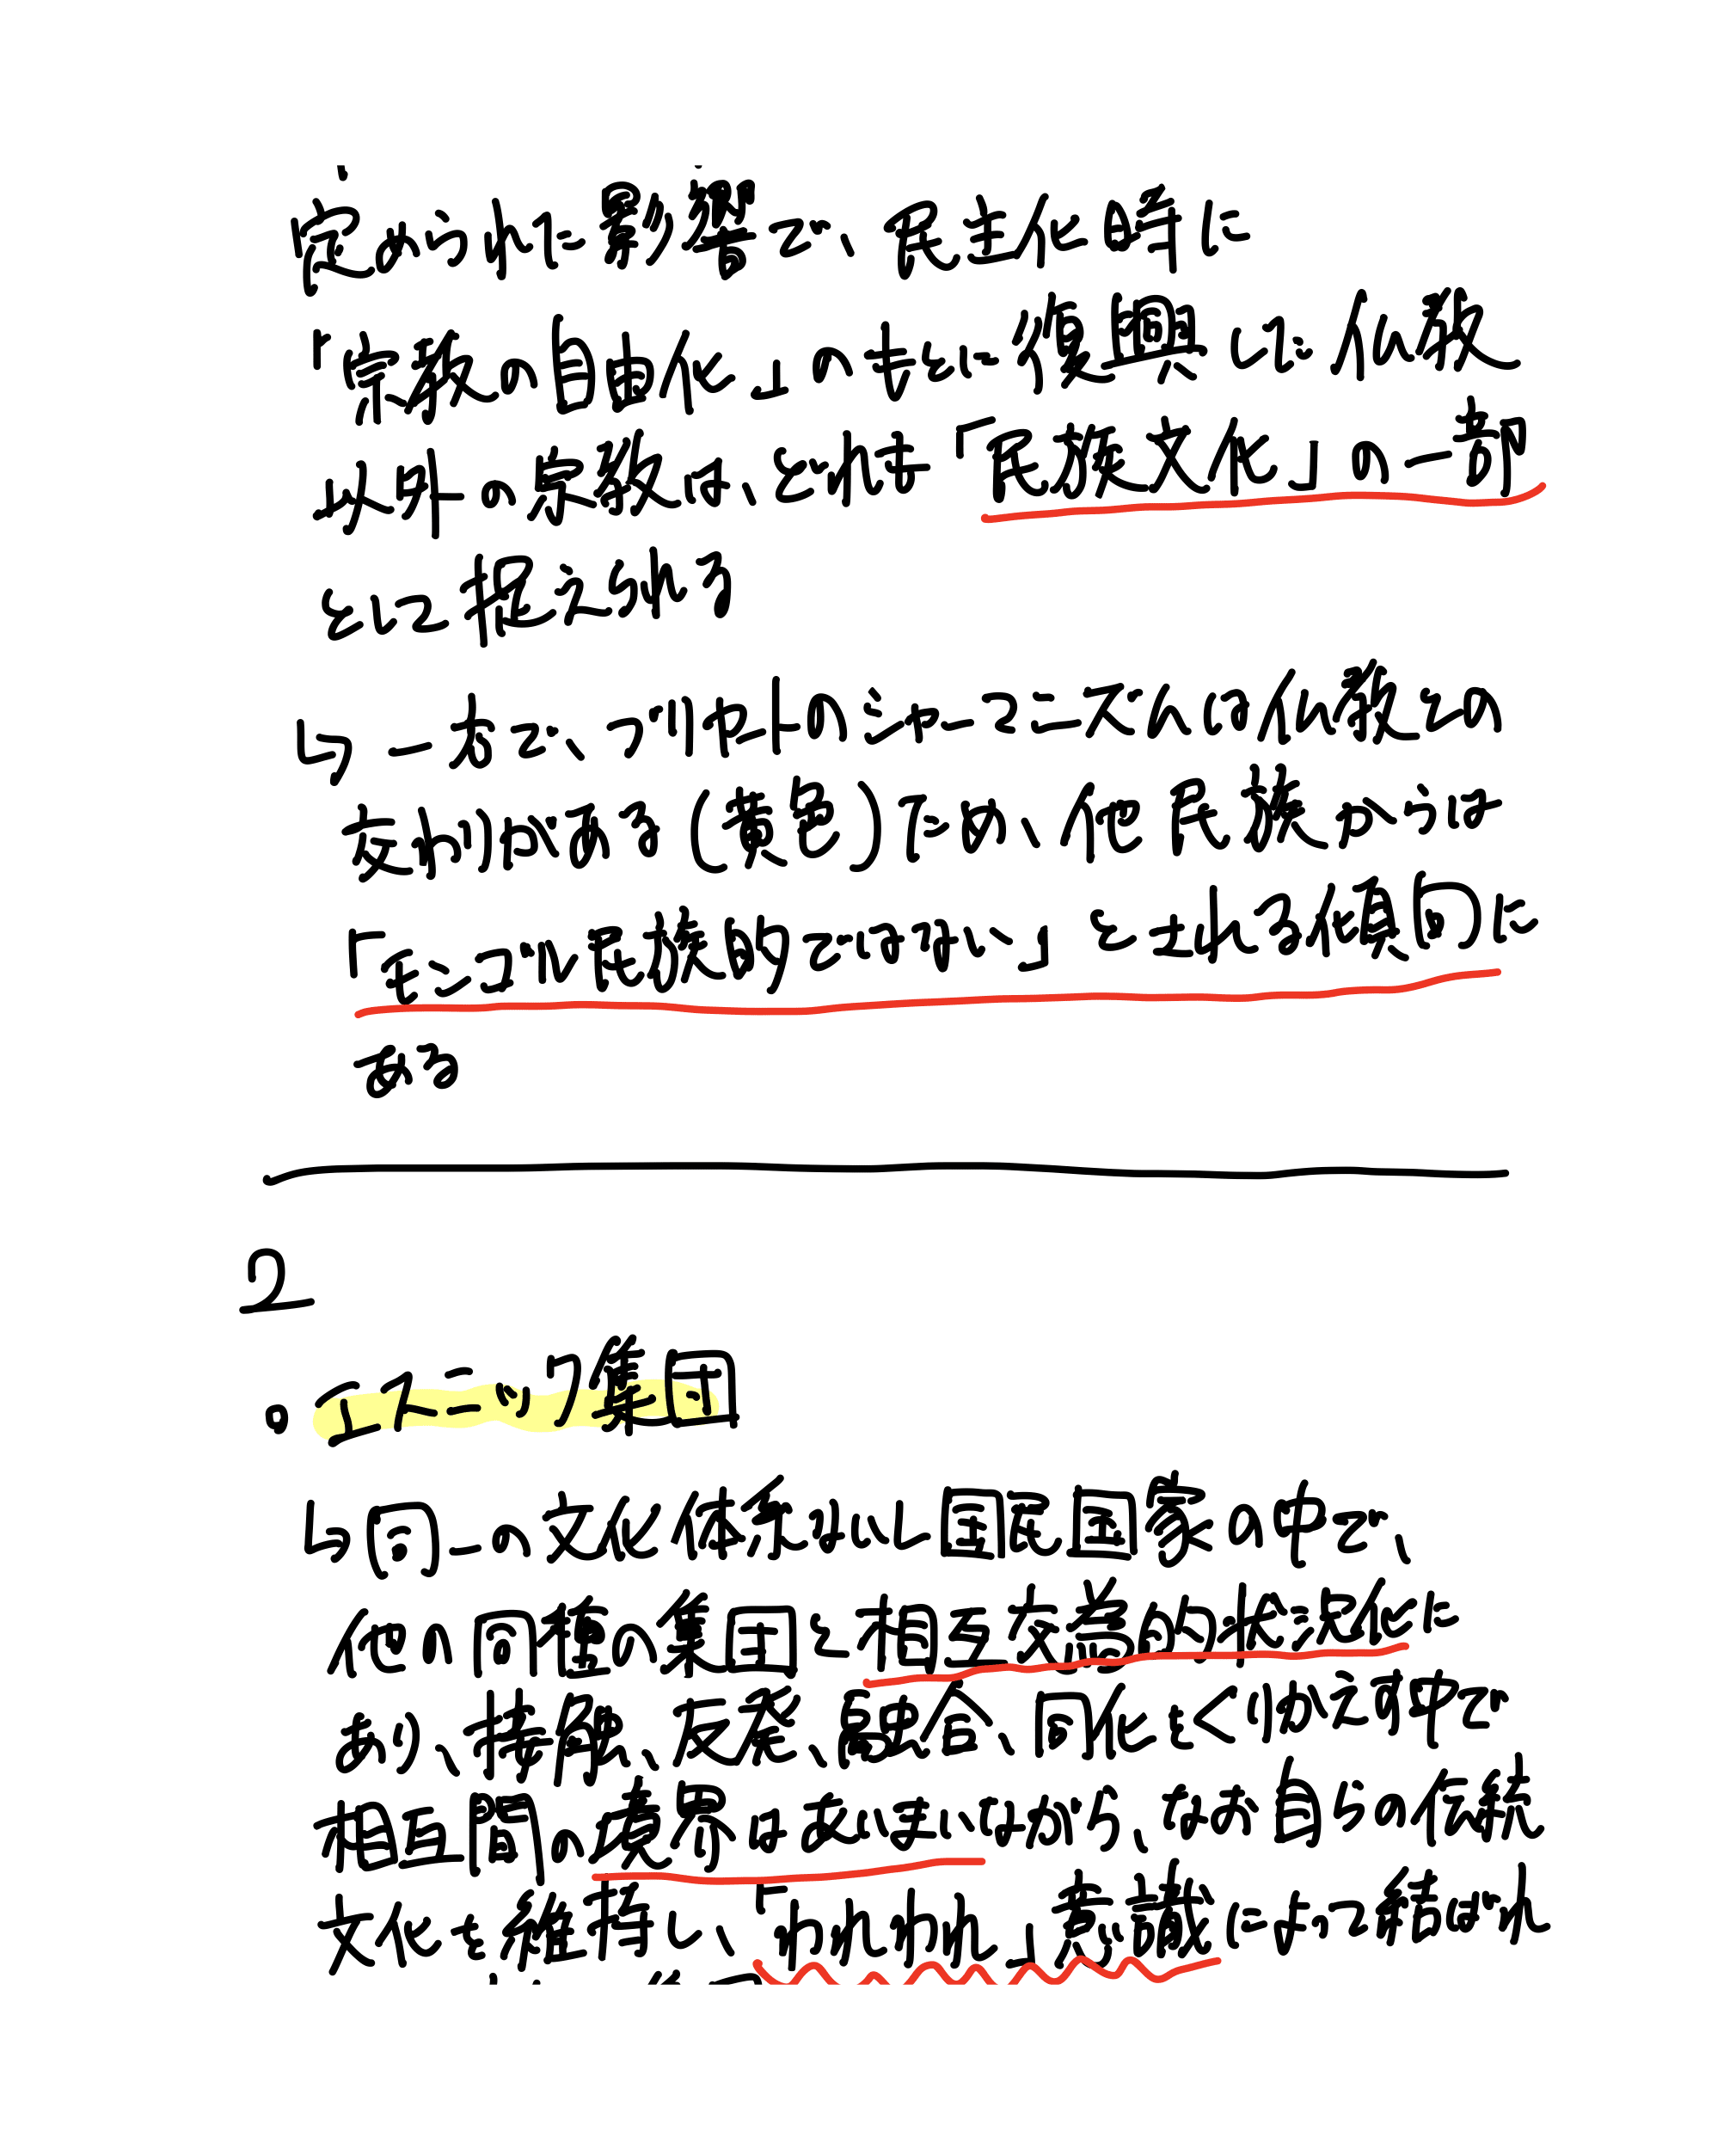 定められた影響で、民主化時に
「宗教の自由化」のもとに復興した仏教
以外の宗教は、どれも「民族文化」の一部
として捉えられる
↳ 一方で、ブリヤートのシャーマニズムは仏教との
交わりがある(黄色)ため、他民族からは
「モンゴル民族的ではない」とされる傾向に
ある
2
・エスニック集団
↳ 同一の文化体系ないし国民国家の中で、
他の同種の集団と相互交渉的状況化に
あり、接触、反発、融合、同化をくりかえす中で
相互間の境界はあいまいながら、なお自らの伝統
文化を維持し、「われわれ」意識によって結ばれ